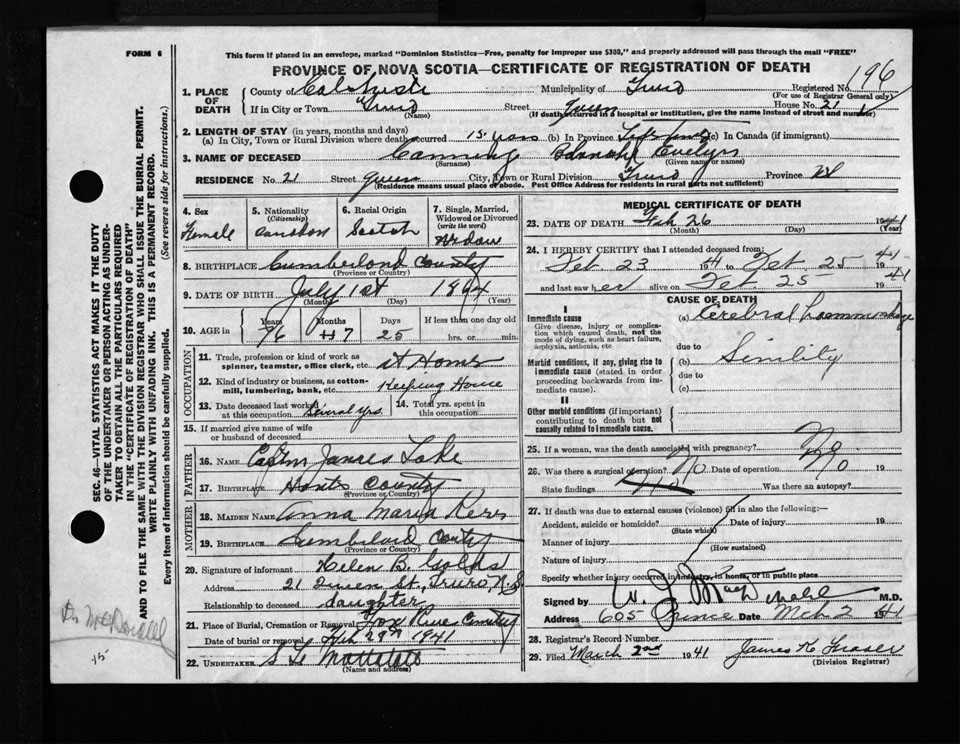 FORM 6
This form if placed in an envelope, marked "Dominion Statistics—Free, penalty for improper use $300," and properly addressed will pass through the mail "FREE"
PROVINCE OF NOVA SCOTIA—CERTIFICATE OF REGISTRATION OF DEATH
Registered No. 196
(For use of Registrar General only)
1. PLACE OF DEATH
County of Municipality of Truro
If in City or Town Truro Street Queen House No. 21
(Name) (If death occurred in a hospital or institution, give the name instead of street and number)
2. LENGTH OF STAY (in years, months and days)
(a) In City, Town or Rural Division where death occurred 15 years (b) In Province Lifetime (c) In Canada (if immigrant)
3. NAME OF DECEASED Canning Blanche Evelyn
(Surname) (Given name or names)
RESIDENCE No. 21 Street Queen City, Town or Rural Division Truro Province NS
(Residence means usual place of abode. Post Office Address for residents in rural parts not sufficient)
4. Sex Female
5. Nationality (Citizenship)
6. Racial Origin Scotch
7. Single, Married, Widowed or Divorced (write the word)
8. BIRTHPLACE Cumberland County
(Province or Country)
9. DATE OF BIRTH July 1st 1864
(Month) (Day) (Year)
10. AGE in Years 76 Months 7 Days 25 If less than one day old hrs. or min.
OCCUPATION
11. Trade, profession or kind of work as spinner, teamster, office clerk, etc. at Home
12. Kind of industry or business, as cotton-mill, lumbering, bank, etc. Keeping House
13. Date deceased last worked at this occupation Several yrs.
14. Total yrs. spent in this occupation
15. If married give name of wife or husband of deceased
FATHER
16. NAME James
17. BIRTHPLACE Hants County
(Province or Country)
MOTHER
18. MAIDEN NAME Anna Maria
19. BIRTHPLACE Cumberland County
(Province or Country)
20. Signature of informant Helen B.
Address 21 Queen St, Truro, N.S
Relationship to deceased daughter
21. Place of Burial, Cremation or Removal Cemetery
Date of burial or removal 1941
22. UNDERTAKER
(Name and address)
MEDICAL CERTIFICATE OF DEATH
23. DATE OF DEATH Feb 26 1941
(Month) (Day) (Year)
24. I HEREBY CERTIFY that I attended deceased from:
Feb 23 1941 to Feb 25 1941
and last saw her alive on Feb 25 1941
CAUSE OF DEATH
I
Immediate cause
Give disease, injury or complication which caused death, not the mode of dying, such as heart failure, asphyxia, asthenia, etc
(a) Cerebral
due to
Morbid conditions, if any, giving rise to immediate cause (stated in order proceeding backwards from immediate cause).
(b)
due to
(c)
II
Other morbid conditions (if important) contributing to death but not causally related to immediate cause.
25. If a woman, was the death associated with pregnancy? No
26. Was there a surgical operation? No Date of operation 19
State findings Was there an autopsy? No
27. If death was due to external causes (violence) fill in also the following:—
Accident, suicide or homicide? Date of injury 19
(State which)
Manner of injury
(How sustained)
Nature of injury
Specify whether injury occurred in industry, in home, or in public place
Signed by M.D.
Address 605 Prince Date Mch 2 1941
28. Registrar's Record Number
29. Filed March 2nd 1941 James K. Fraser
(Division Registrar)
SEC. 46—VITAL STATISTICS ACT MAKES IT THE DUTY OF THE UNDERTAKER OR PERSON ACTING AS UNDERTAKER TO OBTAIN ALL THE PARTICULARS REQUIRED IN THE "CERTIFICATE OF REGISTRATION OF DEATH" AND TO FILE THE SAME WITH THE DIVISION REGISTRAR WHO SHALL ISSUE THE BURIAL PERMIT.
WRITE PLAINLY WITH UNFADING INK. THIS IS A PERMANENT RECORD.
Every item of information should be carefully supplied. (See reverse side for instructions.)
15